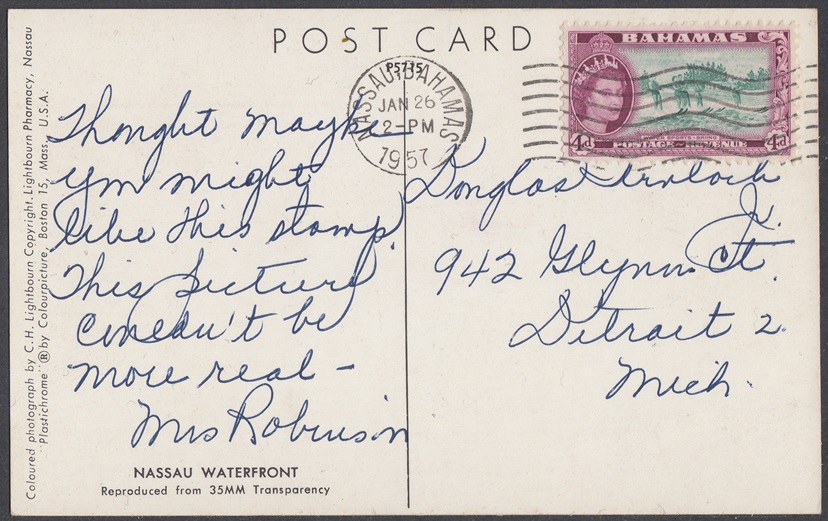 POST CARD
P57154
NASSAU-BAHAMAS
JAN 26
2-PM
1957
BAHAMAS
4d 4d
POSTAGE REVENUE
Thought maybe
you might
like this stamp.
This picture
couldn't be
more real -
Mrs Robinson
Douglas
Jr.
942 Glynn Ct.
Detroit 2.
Mich.
NASSAU WATERFRONT
Reproduced from 35MM Transparency
Coloured photograph by C.H. Lightbourn Copyright. Lightbourn Pharmacy, Nassau
"Plastichrome" ® by Colourpicture, Boston 15, Mass. U.S.A.